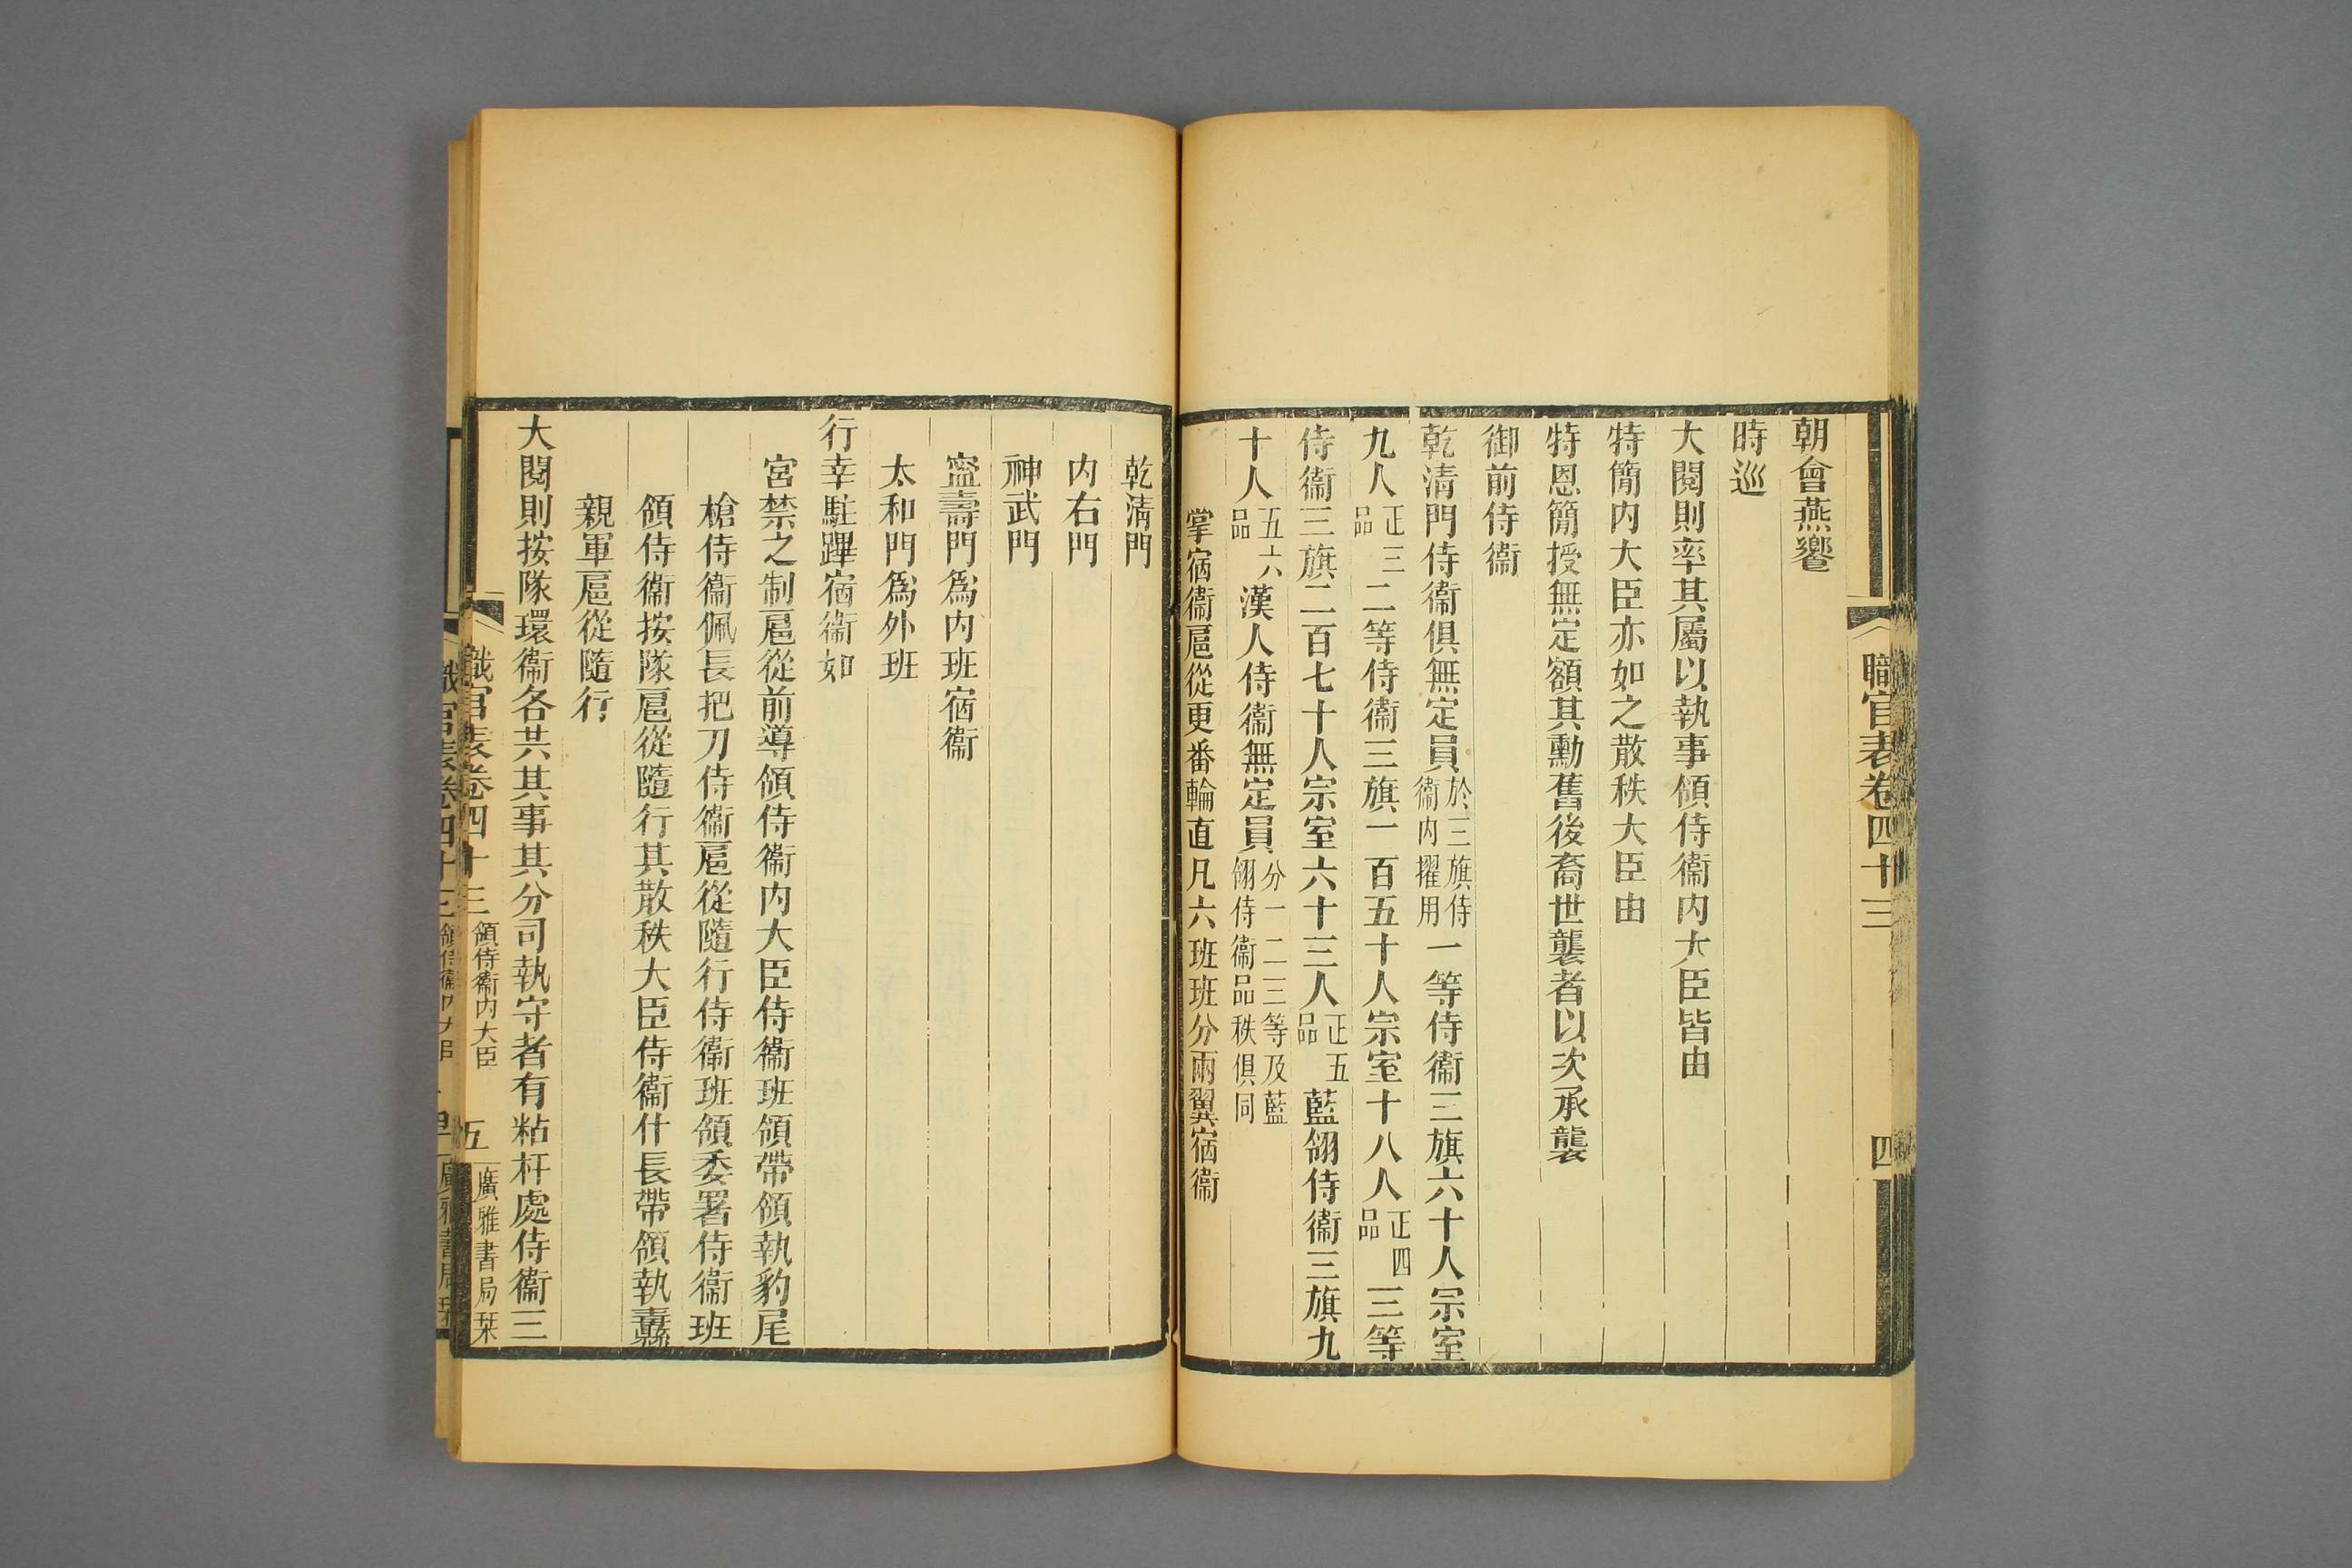 職官表卷四十三
四
朝會燕饗
時巡
大閱則率其屬以執事領侍衞內大臣皆由
特簡內大臣亦如之散秩大臣由
特恩簡授無定額其勳舊後裔世襲者以次承襲
御前侍衞
乾清門侍衞俱無定員於三旗侍衞內擢用一等侍衞三旗六十人宗室
九人正三品二等侍衞三旗一百五十人宗室十八人正四品三等
侍衞三旗二百七十人宗室六十三人正五品藍翎侍衞三旗九
十人五六品漢人侍衞無定員分一二三等及藍翎侍衞品秩俱同
掌宿衞扈從更番輪直凡六班班分兩翼宿衞
乾清門
內右門
神武門
寍壽門爲內班宿衞
太和門爲外班
行幸駐蹕宿衞如
宮禁之制扈從前導領侍衞內大臣侍衞班領帶領執豹尾
槍侍衞佩長把刀侍衞扈從隨行侍衞班領委署侍衞班
領侍衞按隊扈從隨行其散秩大臣侍衞什長帶領執纛
親軍扈從隨行
大閱則按隊環衞各共其事其分司執守者有粘杆處侍衞三
職官表卷四十三 領侍衞內大臣
五
廣雅書局栞